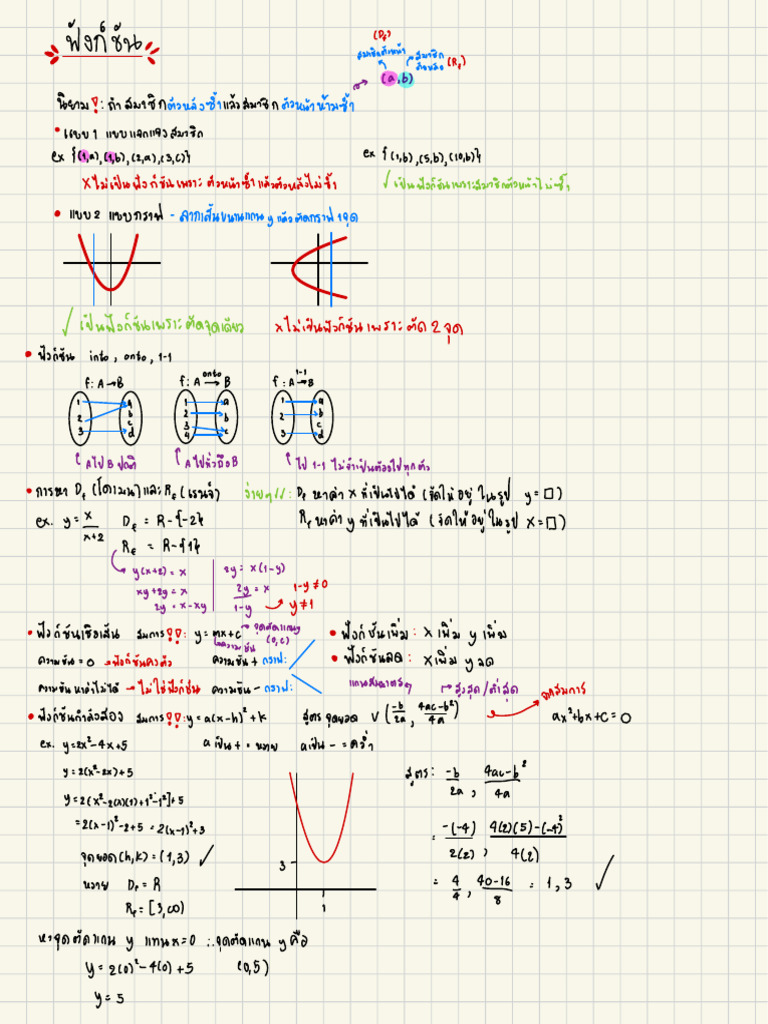 ฟังก์ชัน
(Df)
สมาชิกตัวหน้า สมาชิกตัวหลัง (Rf)
(a,b)
นิยาม : ถ้าสมาชิกตัวหลังซ้ำแล้วสมาชิกตัวหน้าห้ามซ้ำ
• แบบ 1 แบบแจกแจงสมาชิก
ex {(1,a),(1,b),(2,a),(3,c)} ex {(1,b),(5,b),(10,b)}
x ไม่เป็นฟังก์ชันเพราะ ตัวหน้าซ้ำแล้วตัวหลังไม่ซ้ำ √ เป็นฟังก์ชันเพราะสมาชิกตัวหน้าไม่ซ้ำ
• แบบ 2 แบบกราฟ - ลากเส้นขนานแกน y แล้วตัดกราฟ 1 จุด
√ เป็นฟังก์ชันเพราะตัดจุดเดียว x ไม่เป็นฟังก์ชันเพราะ ตัด 2 จุด
• ฟังก์ชัน into, onto, 1-1
f: A→B f: A onto→ B f: A 1-1→ B
1 2 3 a b c d 1 2 3 4 a b c 1 2 3 a b c d
A ไป B ปกติ A ไปทั่วถึง B ไป 1-1 ไม่จำเป็นต้องไปทุกตัว
• การหา Df (โดเมน) และ Rf (เรนจ์) ง่ายๆ!! : Df หาค่า x ที่เป็นไปได้ (จัดให้อยู่ในรูป y=□)
Rf หาค่า y ที่เป็นไปได้ (จัดให้อยู่ในรูป x=□)
ex. y = x/x+2 Df = R-{-2}
Rf = R-{1}
y(x+2) = x 2y = x(1-y)
xy+2y = x 2y/1-y = x 1-y≠0
2y = x-xy y≠1
• ฟังก์ชันเชิงเส้น สมการ : y=mx+c จุดตัดแกน y (0,c)
ความชัน
• ฟังก์ชันเพิ่ม : x เพิ่ม y เพิ่ม
ความชัน = 0 → ฟังก์ชันคงตัว ความชัน + กราฟ:
• ฟังก์ชันลด : x เพิ่ม y ลด
ความชันหาค่าไม่ได้ → ไม่ใช่ฟังก์ชัน ความชัน - กราฟ:
แกนสมมาตร สูงสุด/ต่ำสุด
• ฟังก์ชันกำลังสอง สมการ : y=a(x-h)²+k สูตรจุดยอด V(-b/2a, 4ac-b²/4a) จากสมการ
ax²+bx+c=0
ex. y=2x²-4x+5 a เป็น + = หงาย a เป็น - = คว่ำ
y=2(x²-2x)+5
y=2(x²-2(x)(1)+1²-1²]+5
=2(x-1)²-2+5 = 2(x-1)²+3
จุดยอด(h,k) = (1,3) √
หงาย Df = R
Rf = [3,∞)
3
1
สูตร: -b/2a, 4ac-b²/4a
= -(-4)/2(2), 4(2)(5)-(-4)²/4(2)
= 4/4, 40-16/8 = 1,3 √
หาจุดตัดแกน y แทน x=0 ∴ จุดตัดแกน y คือ
y=2(0)²-4(0)+5 (0,5)
y=5